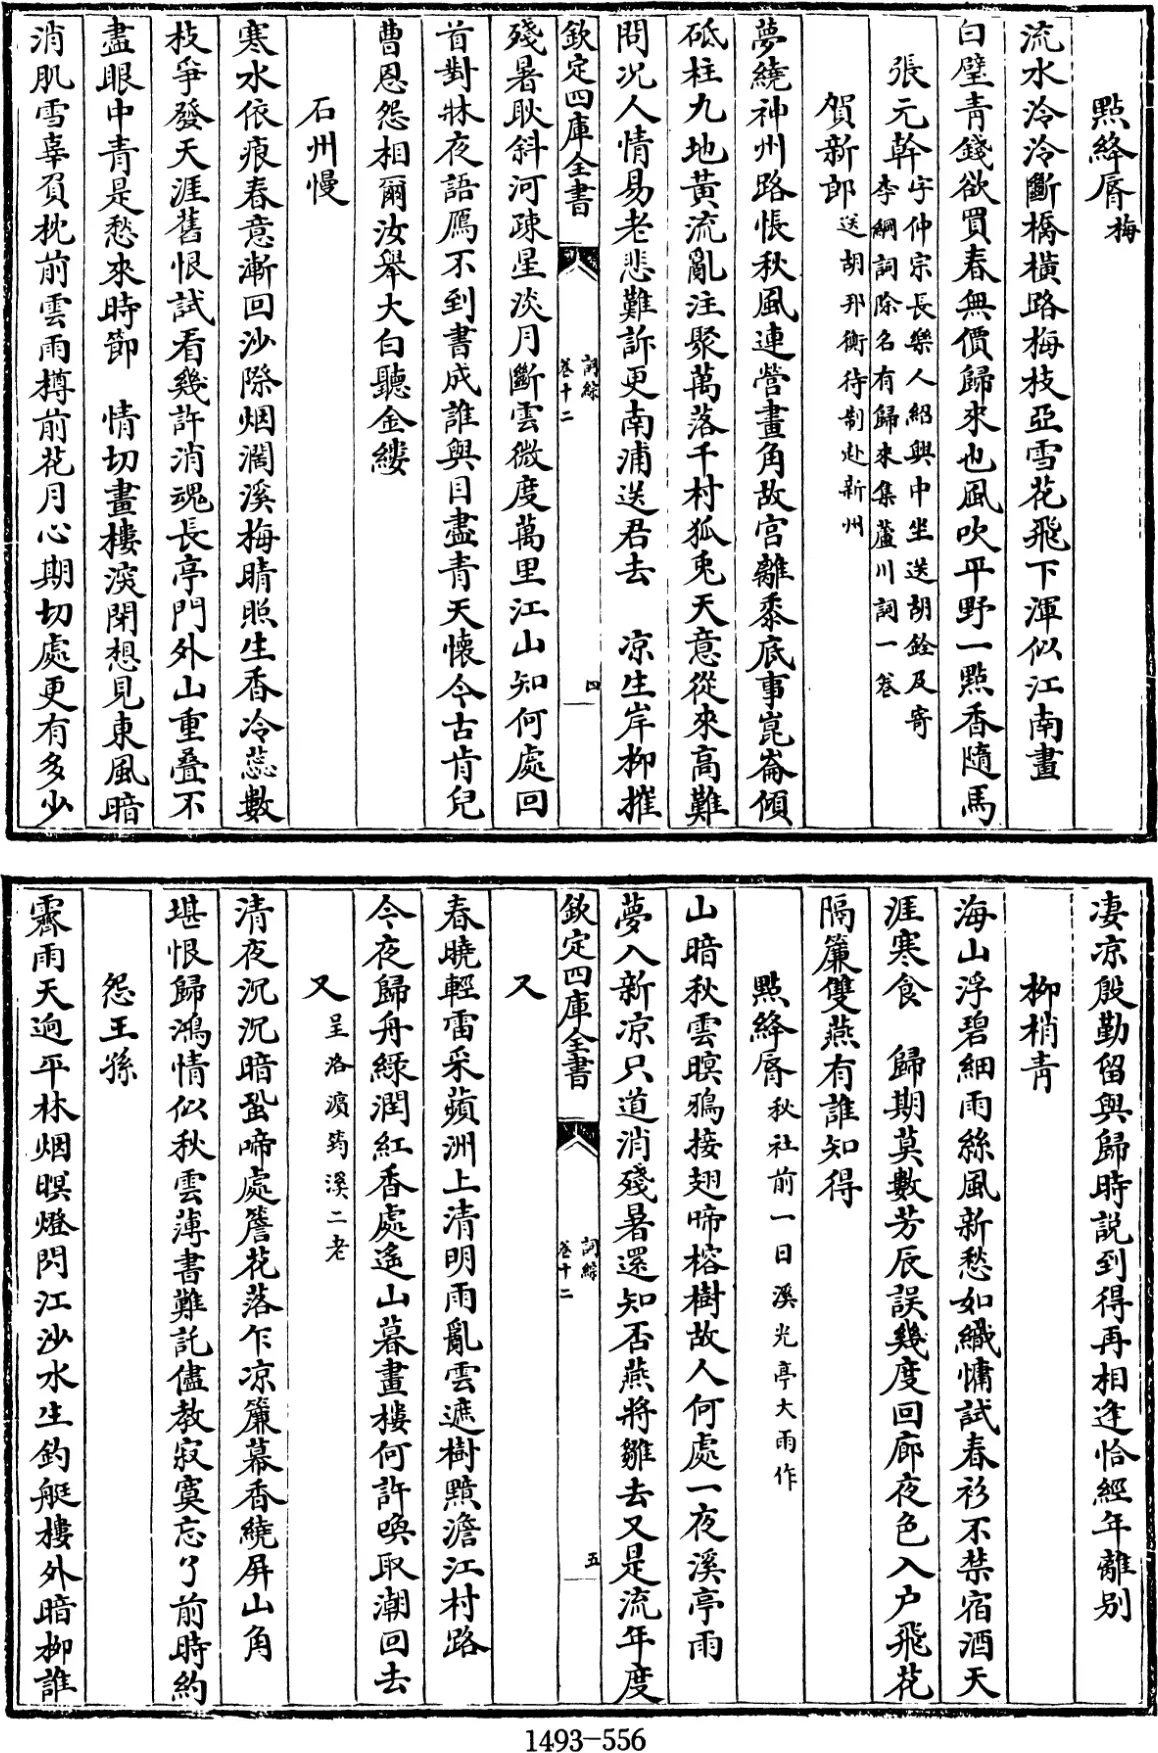 點絳脣梅
流水泠泠斷橋橫路梅枝亞雪花飛下渾似江南畫
白壁青錢欲買春無價歸來也風吹平野一點香隨馬
張元幹字仲宗長樂人紹興中坐送胡銓及寄
李綱詞除名有歸來集蘆川詞一卷
賀新郎送胡邦衡待制赴新州
夢繞神州路悵秋風連營畫角故宫離黍底事崑崙傾
砥柱九地黃流亂注聚萬落千村狐兎天意從來高難
問况人情易老悲難訴更南浦送君去　凉生岸柳摧
欽定四庫全書
詞綜
卷十二
四
殘暑耿斜河疎星淡月斷雲微度萬里江山知何處回
首對牀夜語鴈不到書成誰與目盡青天懷今古肯兒
曹恩怨相爾汝舉大白聽金縷
石州慢
寒水依痕春意漸回沙際烟濶溪梅晴照生香冷蕊數
枝爭發天涯舊恨試看幾許消魂長亭門外山重叠不
盡眼中青是愁來時節　情切畫樓深閉想見東風暗
消肌雪辜負枕前雲雨樽前花月心期切處更有多少
凄凉殷勤留與歸時説到得再相逢恰經年離别
柳梢青
海山浮碧細雨絲風新愁如織慵試春衫不禁宿酒天
涯寒食　歸期莫數芳辰誤幾度回廊夜色入户飛花
隔簾雙燕有誰知得
點絳脣秋社前一日溪光亭大雨作
山暗秋雲暝鴉接翅啼榕樹故人何處一夜溪亭雨
夢入新凉只道消殘暑還知否燕將雛去又是流年度
欽定四庫全書
詞綜
卷十二
五
又
春曉輕雷采蘋洲上清明雨亂雲遮樹黯澹江村路
今夜歸舟緑潤紅香處遙山暮畫樓何許喚取潮回去
又呈洛濵筠溪二老
清夜沉沉暗蛩啼處簷花落乍凉簾幕香繞屏山角
堪恨歸鴻情似秋雲薄書難託儘教寂寞忘了前時約
怨王孫
霽雨天逈平林烟暝燈閃江沙水生釣艇樓外暗柳誰
1493—556